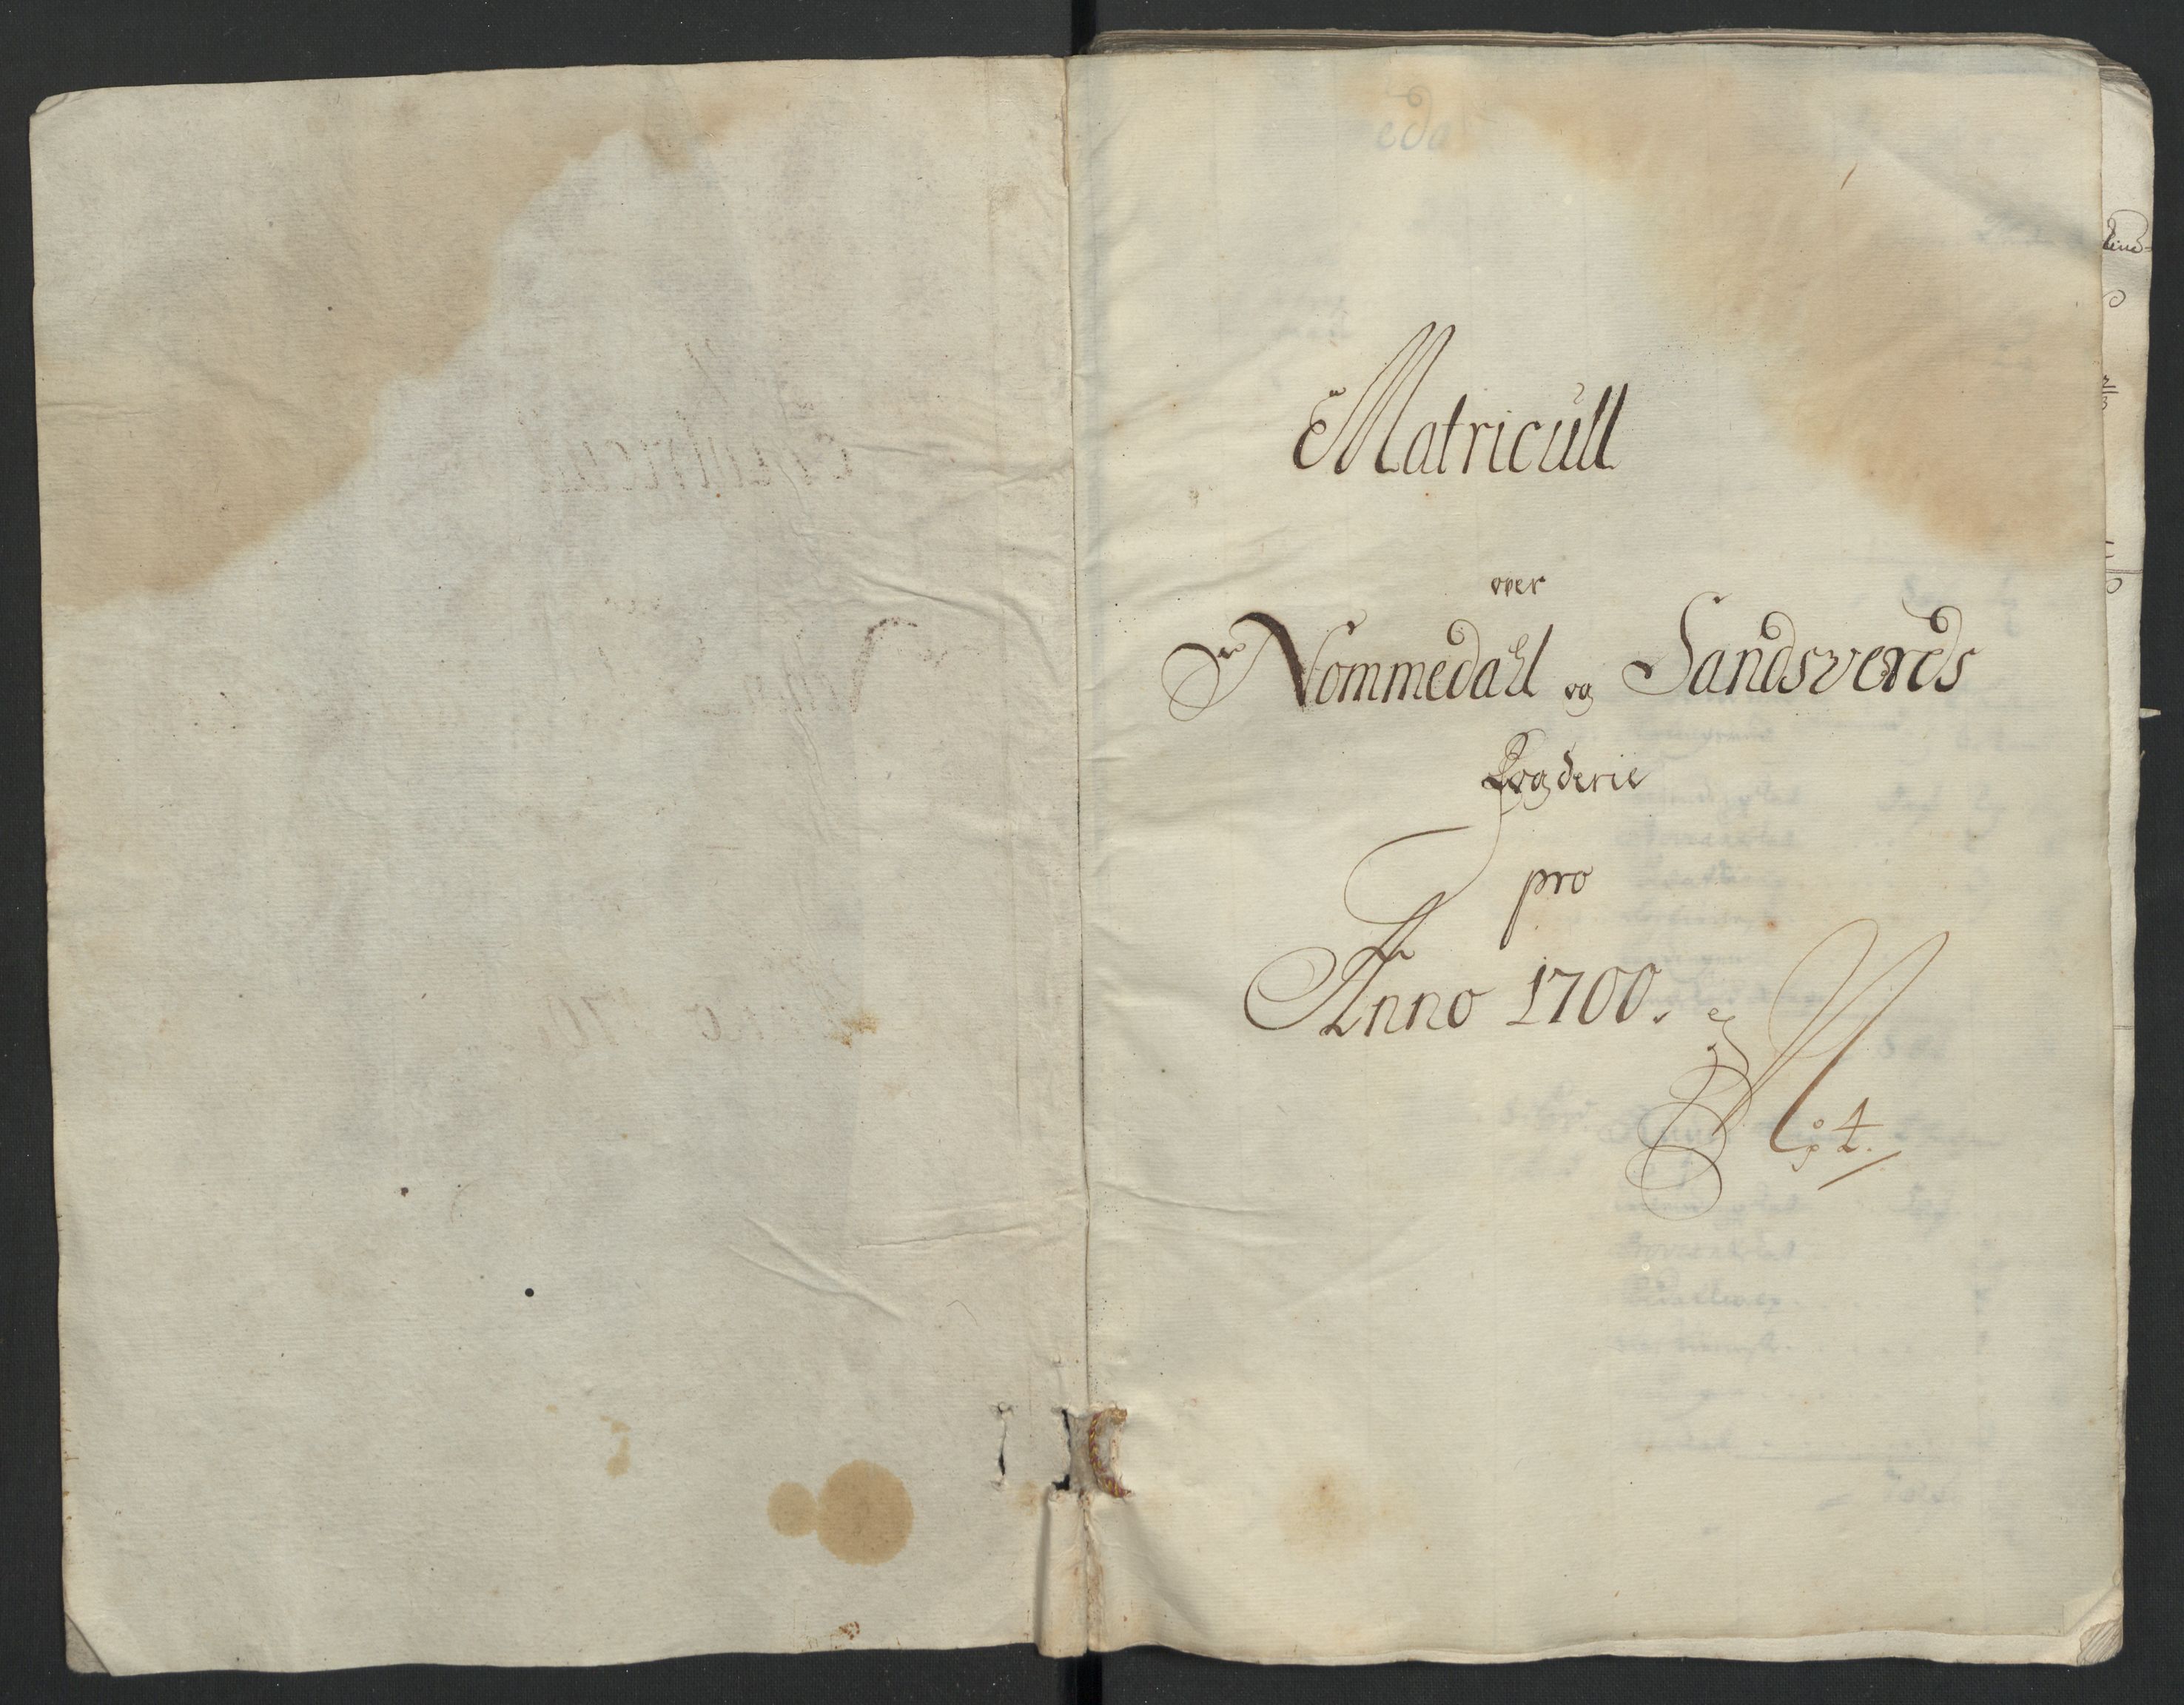 Matricull
over
Nommedahl og Sandsverds
Fogderie
pro
Anno 1700.
N: 4.